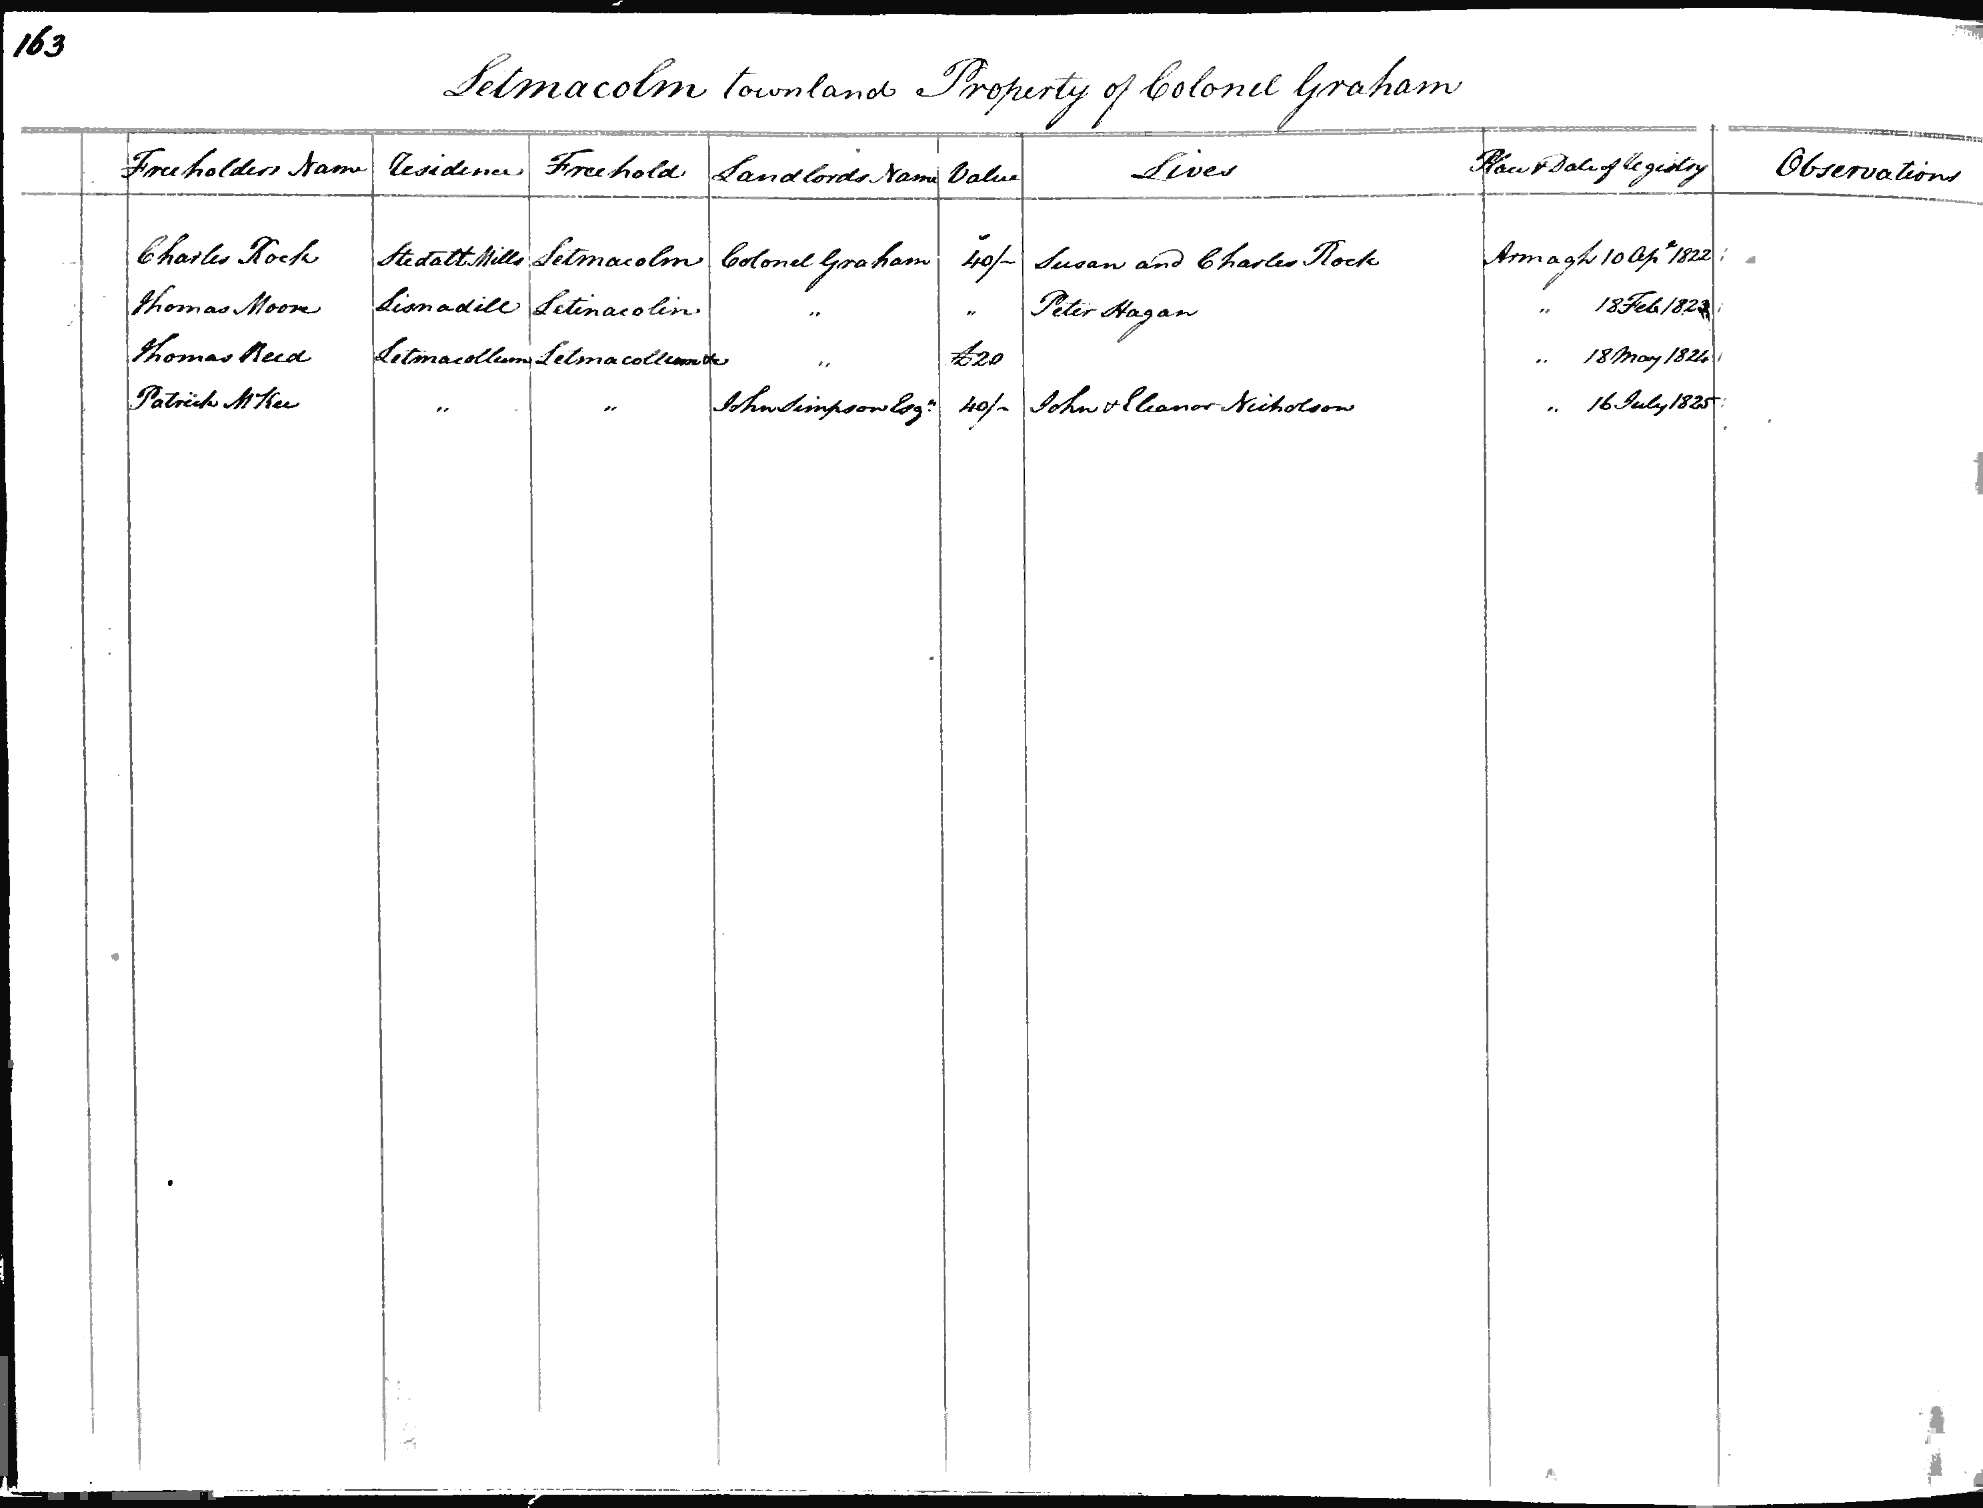 163
Letmacolm townland Property of Colonel Graham
Freeholders Name Residence Freehold Landlords Name Value Lives Place & Date of Registry Observations
Charles Rock Stedatt Mills Letmacolm Colonel Graham 40/- Susan and Charles Rock Armagh 10 Apr 1822
Thomas Moore Lisnadill Letinacolin " " Peter Hagan " 18 Feb 1823
Thomas Reed Letmacollum Letmacollum &c " £20 " 18 May 1824
Patrick McKee " " John Simpson Esqr 40/- John & Eleanor Nicholson " 16 July 1825